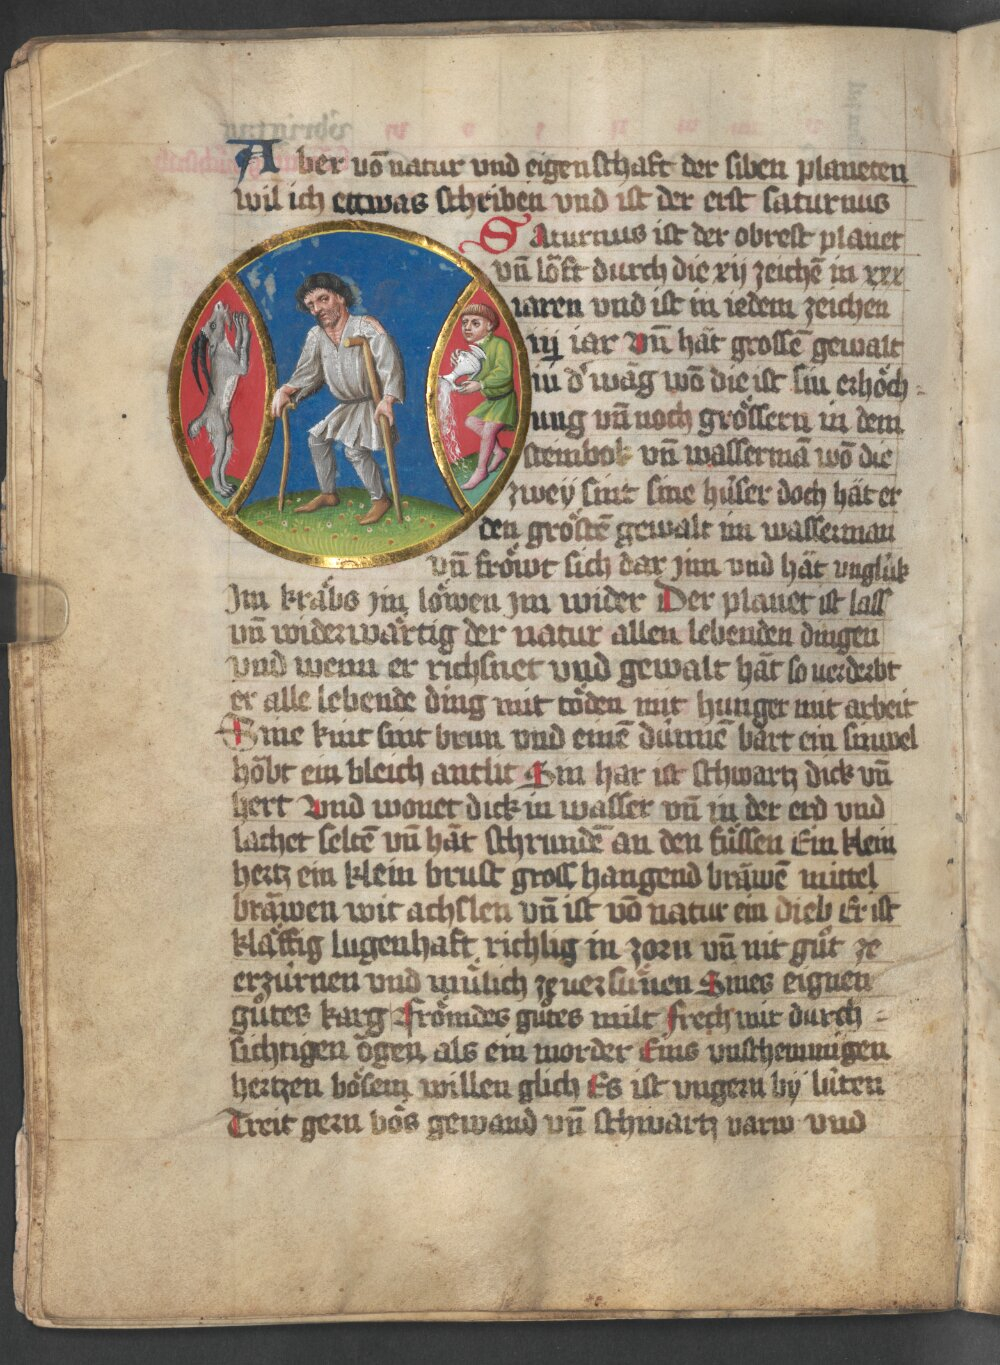 Aber võ natur vnd eigenschaft der siben planeten
wil ich ettwas schriben vnd ist der erst saturnus
Saturnus ist der obrest planet
vñ lőft durch die xij zeichē in xxx
iaren vnd ist in iedem zeichen
iij iar vñ hăt grossē gewalt
in d' wăg wő die ist sin erhöch-
ung vñ noch grössern in dem
steinbok vñ wassermā wő die
zwey sint sine hüser doch hăt er
den gröstē gewalt im wasserman
vñ fröwt sich dar jnn vnd hăt vnglük
Jm kräbs jm löwen jm wider Der planet ist lass
vñ widerwärtig der natur allen lebenden dingen
vnd wenn er richsnet vnd gewalt hăt so verderbt
er alle lebende ding mit töden mit hunger mit arbeit
Sine kint sint brun vnd einē dünnē bart ein sinwel
hőbt ein bleich antlit Sin har ist schwartz dick vñ
hert Vnd wonet dick in wasser vñ in der erd vnd
lachet seltē vñ hăt schrundē an den füssen Ein klein
hertz ein klein brust gross hangend brăwē mittel
brăwen wit achslen vñ ist võ natur ein dieb Er ist
kläffig lugenhaft richlig in zorn vñ nit gůt ze
erzürnen vnd mülich ze uersünen Sines eignen
gůtes karg Frömdes gůtes milt Frech mit durch-
sichtigen ögen als ein morder Eins vnschemmigen
hertzen bösem willen glich Es ist vngern by lüten
Treit gern bös gewand vñ schwartz varw vnd